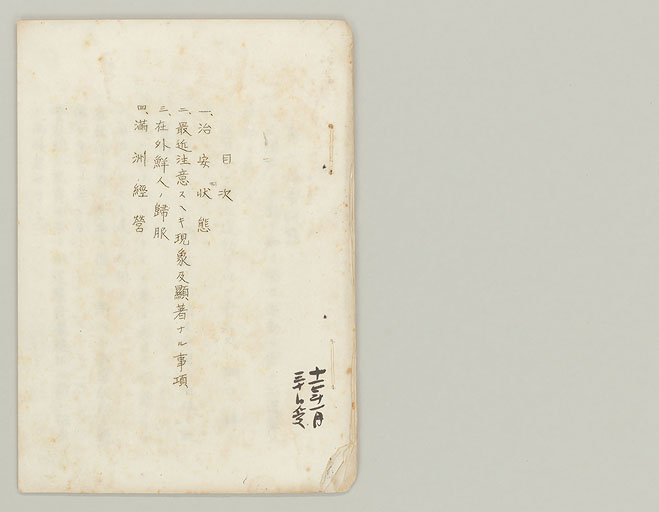 目次
一、治安状態
二、最近注意スヘキ現象及顯著ナル事項
三、在外鮮人ノ歸服
四、滿洲經營